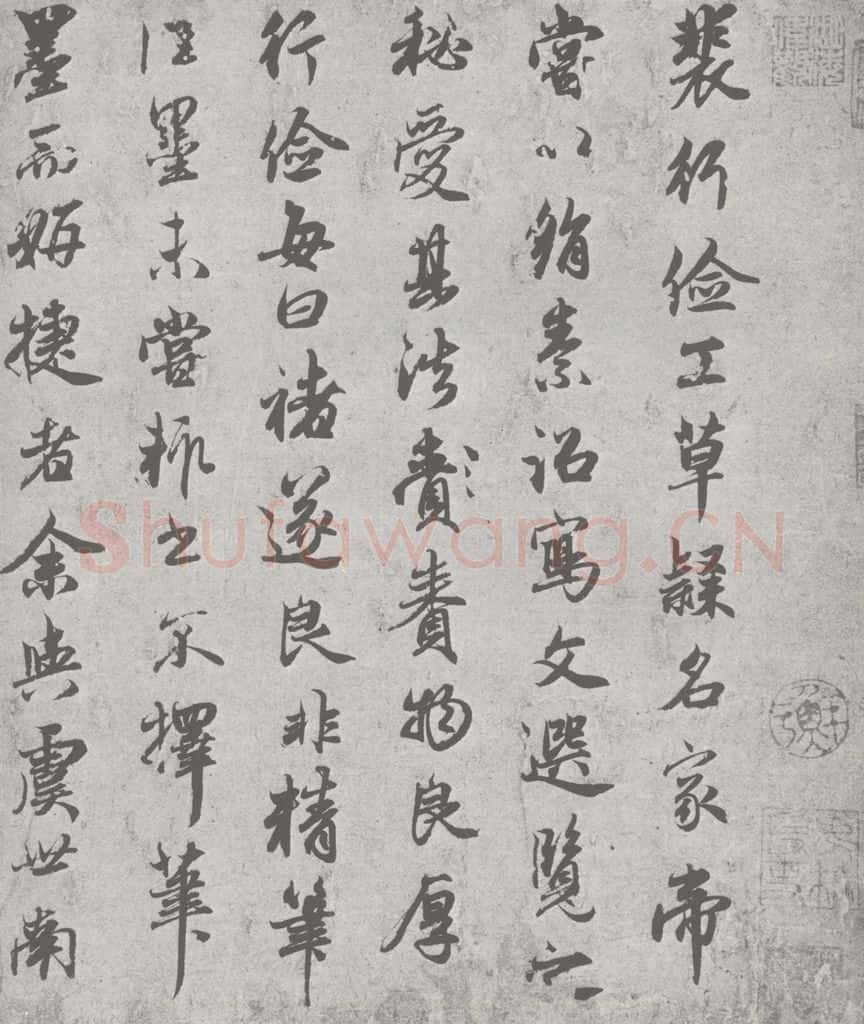 裴行儉工草隸名家帝
嘗以絹素詔寫文選覽之
秘愛其法賚物良厚
行儉每曰褚遂良非精筆
佳墨未嘗輒書不擇筆
墨而妍捷者余與虞世南
Shufawang.CN